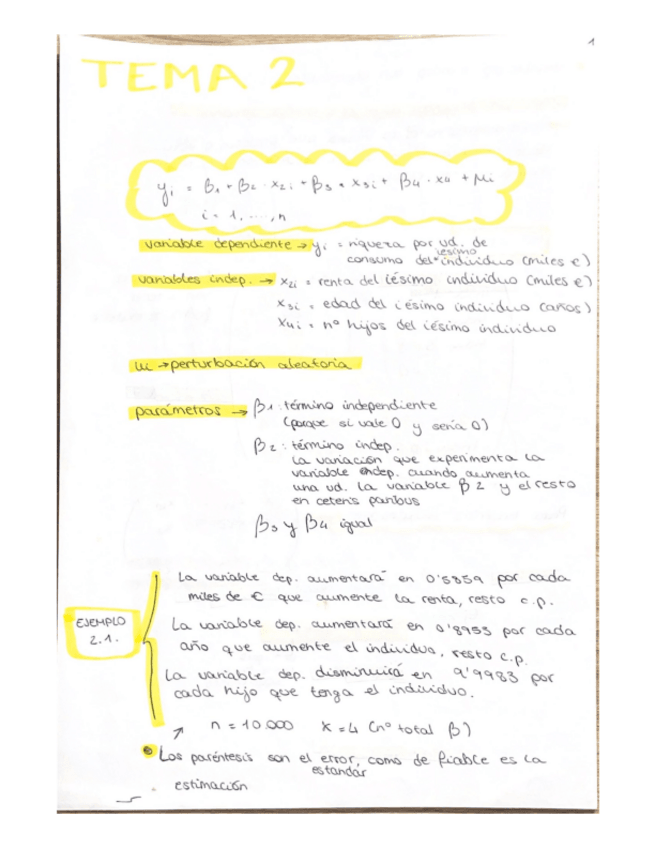 1
TEMA 2
yi = β1 + β2 · x2i + β3 · x3i + β4 · x4 + μi
i = 1, ...., n
variable dependiente → yi = riqueza por ud. de
consumo del iésimo individuo (miles €)
variables indep. → x2i = renta del iésimo individuo (miles €)
x3i = edad del iésimo individuo (años)
x4i = nº hijos del iésimo individuo
ui → perturbación aleatoria
parámetros → β1: término independiente
(porque si vale 0 y sería 0)
β2: término indep.
La variación que experimenta la
variable indep. cuando aumenta
una ud. la variable β2 y el resto
en ceteris paribus
β3 y β4 igual
La variable dep. aumentará en 0'5859 por cada
miles de € que aumente la renta, resto c.p.
EJEMPLO
2.1.
La variable dep. aumentará en 0'8953 por cada
año que aumente el individuo, resto c.p.
La variable dep. disminuirá en 9'9983 por
cada hijo que tenga el individuo.
↗ n = 10.000 K = 4 (nº total β)
Los paréntesis son el error estándar, como de fiable es la
estimación